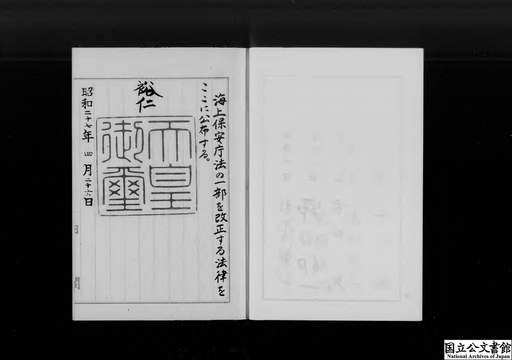 海上保安庁法の一部を改正する法律を
ここに公布する。
裕仁
天皇
御璽
昭和二十七年 四月二十六日
国立公文書館
National Archives of Japan